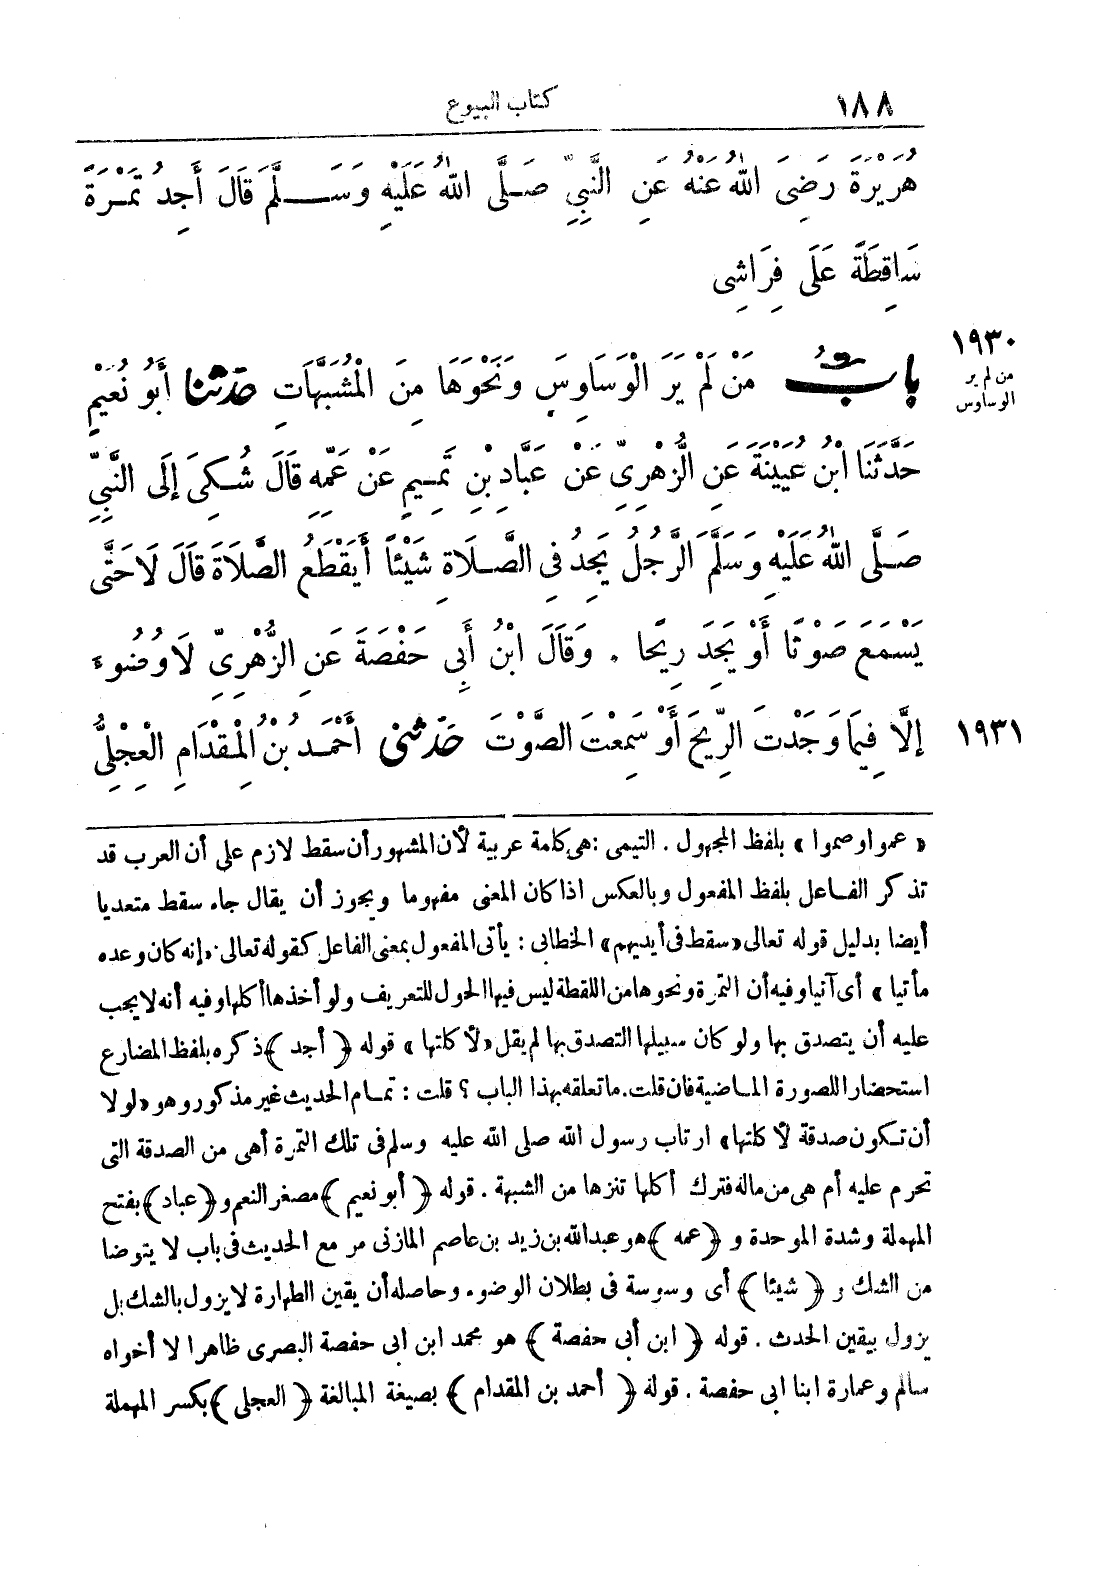 ١٨٨ كتاب البيوع
هُرَيْرَةَ رَضِىَ اللهُ عَنْهُ عَنِ النَّبِيِّ صَلَّى اللهُ عَلَيْهِ وَسَلَّمَ قَالَ أَجِدُ تَمْرَةً
سَاقِطَةً عَلَى فِرَاشِى
١٩٣٠
من لم ير
الوساوس
بابُ مَنْ لَمْ يَرَ الْوَسَاوِسَ وَنَحْوَهَا مِنَ الْمُشَبَّهَاتِ حَدَّثَنَا أَبُو نُعَيْمٍ
حَدَّثَنَا ابْنُ عُيَيْنَةَ عَنِ الزُّهْرِىِّ عَنْ عَبَّادِ بْنِ تَمِيمٍ عَنْ عَمِّهِ قَالَ شُكِىَ إِلَى النَّبِيِّ
صَلَّى اللهُ عَلَيْهِ وَسَلَّمَ الرَّجُلُ يَجِدُ فِى الصَّلَاةِ شَيْئًا أَيَقْطَعُ الصَّلَاةَ قَالَ لَا حَتَّى
يَسْمَعَ صَوْتًا أَوْ يَجِدَ رِيحًا . وَقَالَ ابْنُ أَبِى حَفْصَةَ عَنِ الزُّهْرِىِّ لَا وُضُوءَ
١٩٣١ إِلَّا فِيمَا وَجَدْتَ الرِّيحَ أَوْ سَمِعْتَ الصَّوْتَ حَدَّثَنِى أَحْمَدُ بْنُ الْمِقْدَامِ الْعِجْلِىُّ
« عموا وصموا » بلفظ المجهول . التيمى : هى كلمة عربية لأن المشهور أن سقط لازم على أن العرب قد
تذكر الفاعل بلفظ المفعول وبالعكس اذا كان المعنى مفهوما ويجوز أن يقال جاء سقط متعديا
أيضا بدليل قوله تعالى «سقط فى أيديهم» الخطابى : يأتى المفعول بمعنى الفاعل كقوله تعالى «إنه كان وعده
مأتيا » أى آتيا وفيه أن التمرة ونحوها من اللقطة ليس فيها الحول للتعريف ولو أخذها أكلها وفيه أنه لا يجب
عليه أن يتصدق بها ولو كان سبيلها التصدق بها لم يقل «لأكلتها » قوله ﴿ أجد ﴾ ذكره بلفظ المضارع
استحضارا للصورة الماضية فان قلت . ما تعلقه بهذا الباب ؟ قلت : تمام الحديث غير مذكور وهو «لولا
أن تكون صدقة لأكلتها» ارتاب رسول الله صلى الله عليه وسلم فى تلك التمرة أهى من الصدقة التى
تحرم عليه أم هى من ماله فترك أكلها تنزها من الشبهة . قوله ﴿ أبو نعيم ﴾ مصغر النعم و ﴿ عباد ﴾ بفتح
المهملة وشدة الموحدة و ﴿ عمه ﴾ هو عبد الله بن زيد بن عاصم المازنى مر مع الحديث فى باب لا يتوضا
من الشك و ﴿ شيئا ﴾ أى وسوسة فى بطلان الوضوء وحاصله أن يقين الطهارة لا يزول بالشك بل
يزول بيقين الحدث . قوله ﴿ ابن أبى حفصة ﴾ هو محمد ابن ابى حفصة البصرى ظاهرا لا أخواه
سالم وعمارة ابنا ابى حفصة . قوله ﴿ أحمد بن المقدام ﴾ بصيغة المبالغة ﴿ العجلى ﴾ بكسر المهملة